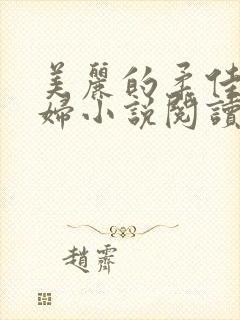 美麗的柔佳
婦小說閱讀
趙霽